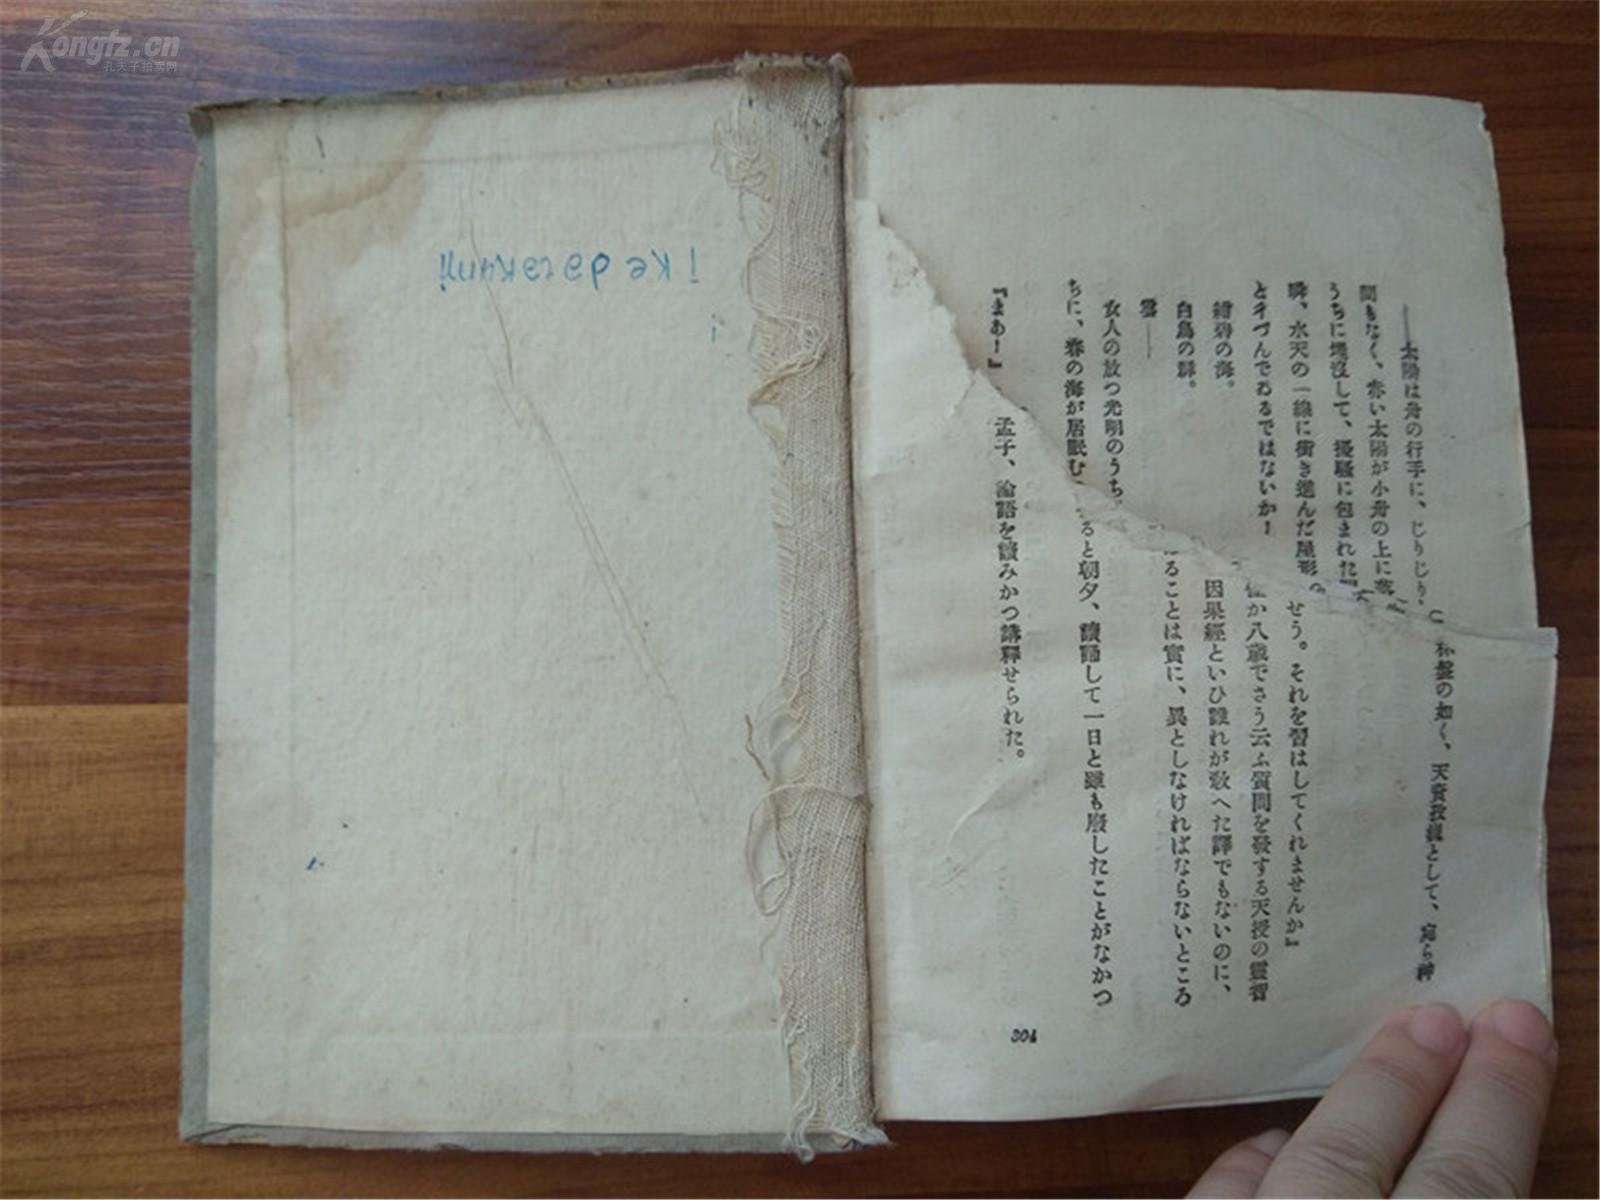 Kongfz.cn
孔夫子拍卖网
ikedatakumi
――太陽は舟の行手に、じりじり
間もなく、赤い太陽が小舟の上に
うちに埋沒して、擾騷に包まれた
隣、水天の一線に衝き進んだ屋形
紺碧の海。
白鳥の群。
雲――
女人の放つ光明のうち
ちに、春の海が居眠む
『まあ！』
盤の如く、天資教經として、
せう。それを習はしてくれませんか』
か八歳でさう云ふ質問を發する天授の靈智
因果經といひ誰れが敎へた譯でもないのに、
ることは實に、異としなければならないところ
ると朝夕、讀誦して一日と雖も廢したことがなかつ
孟子、論語を讀みかつ講釋せられた。
304